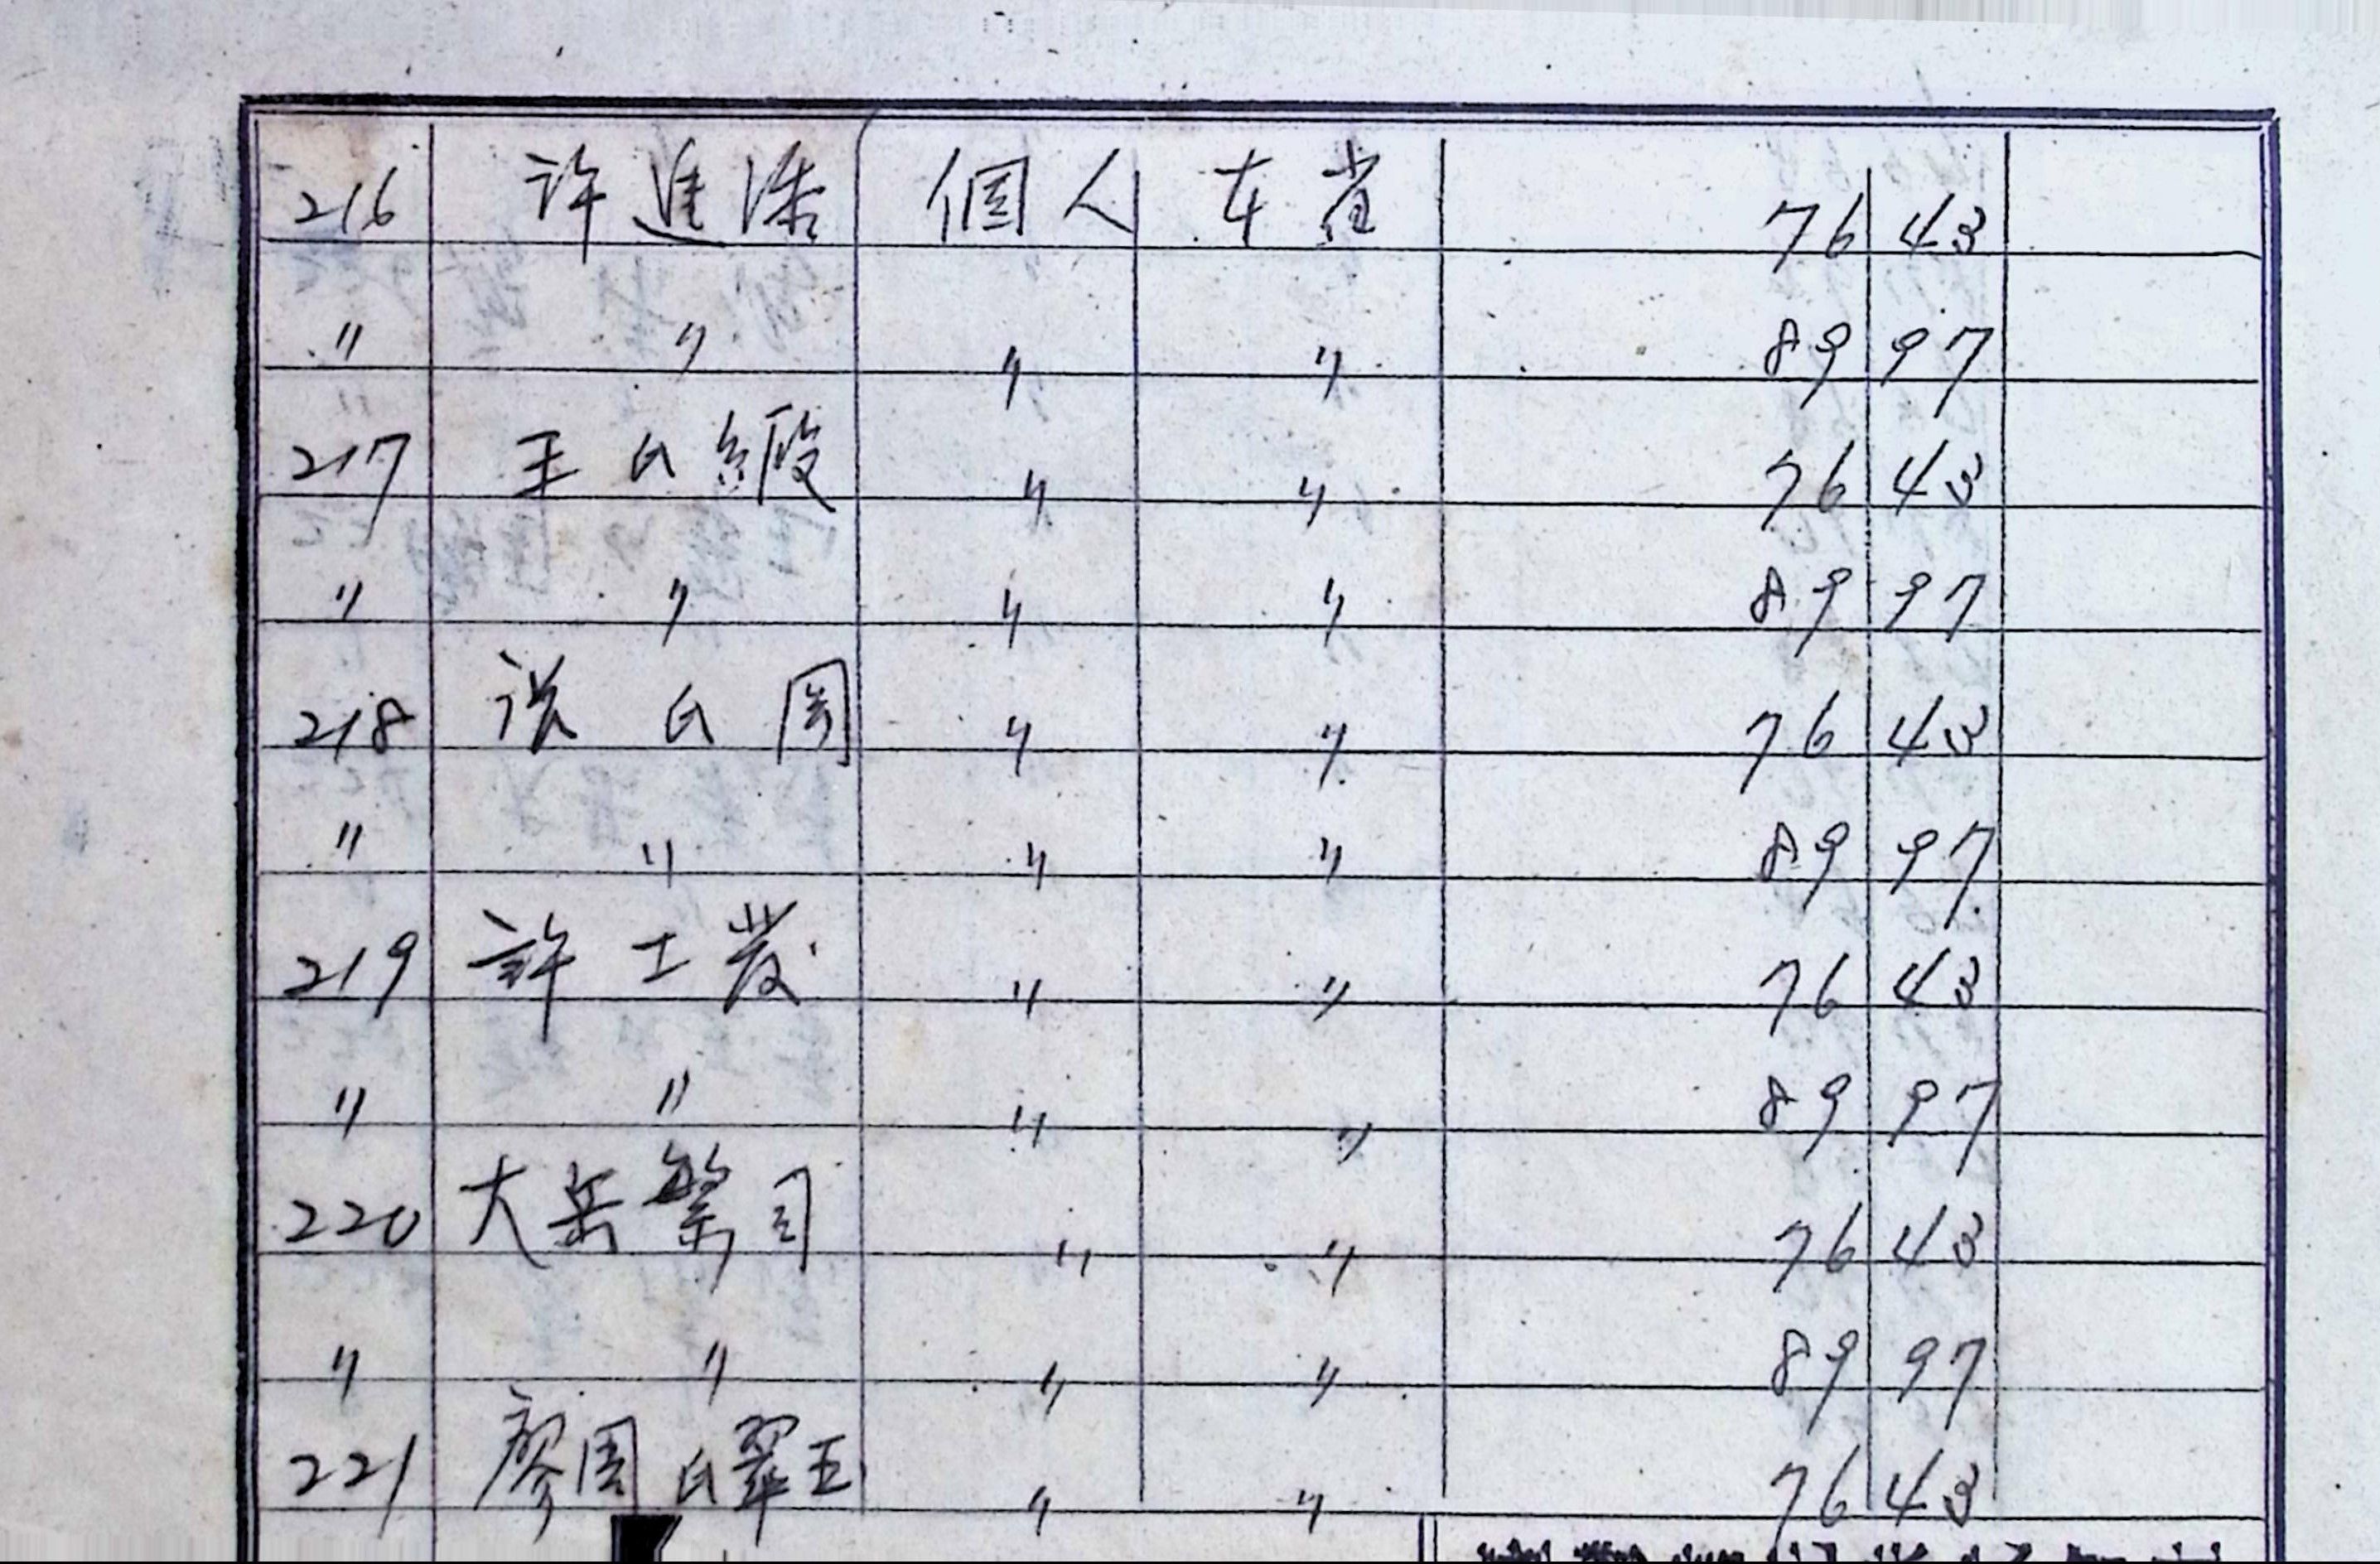 216 許進 個人 76 43
〃 〃 〃 〃 89 97
217 王氏緞 〃 〃 76 43
〃 〃 〃 〃 89 97
218 氏 〃 〃 76 43
〃 〃 〃 〃 89 97
219 許工發 〃 〃 76 43
〃 〃 〃 〃 89 97
220 大岳繁司 〃 〃 76 43
〃 〃 〃 〃 89 97
221 廖周氏翠玉 〃 〃 76 43